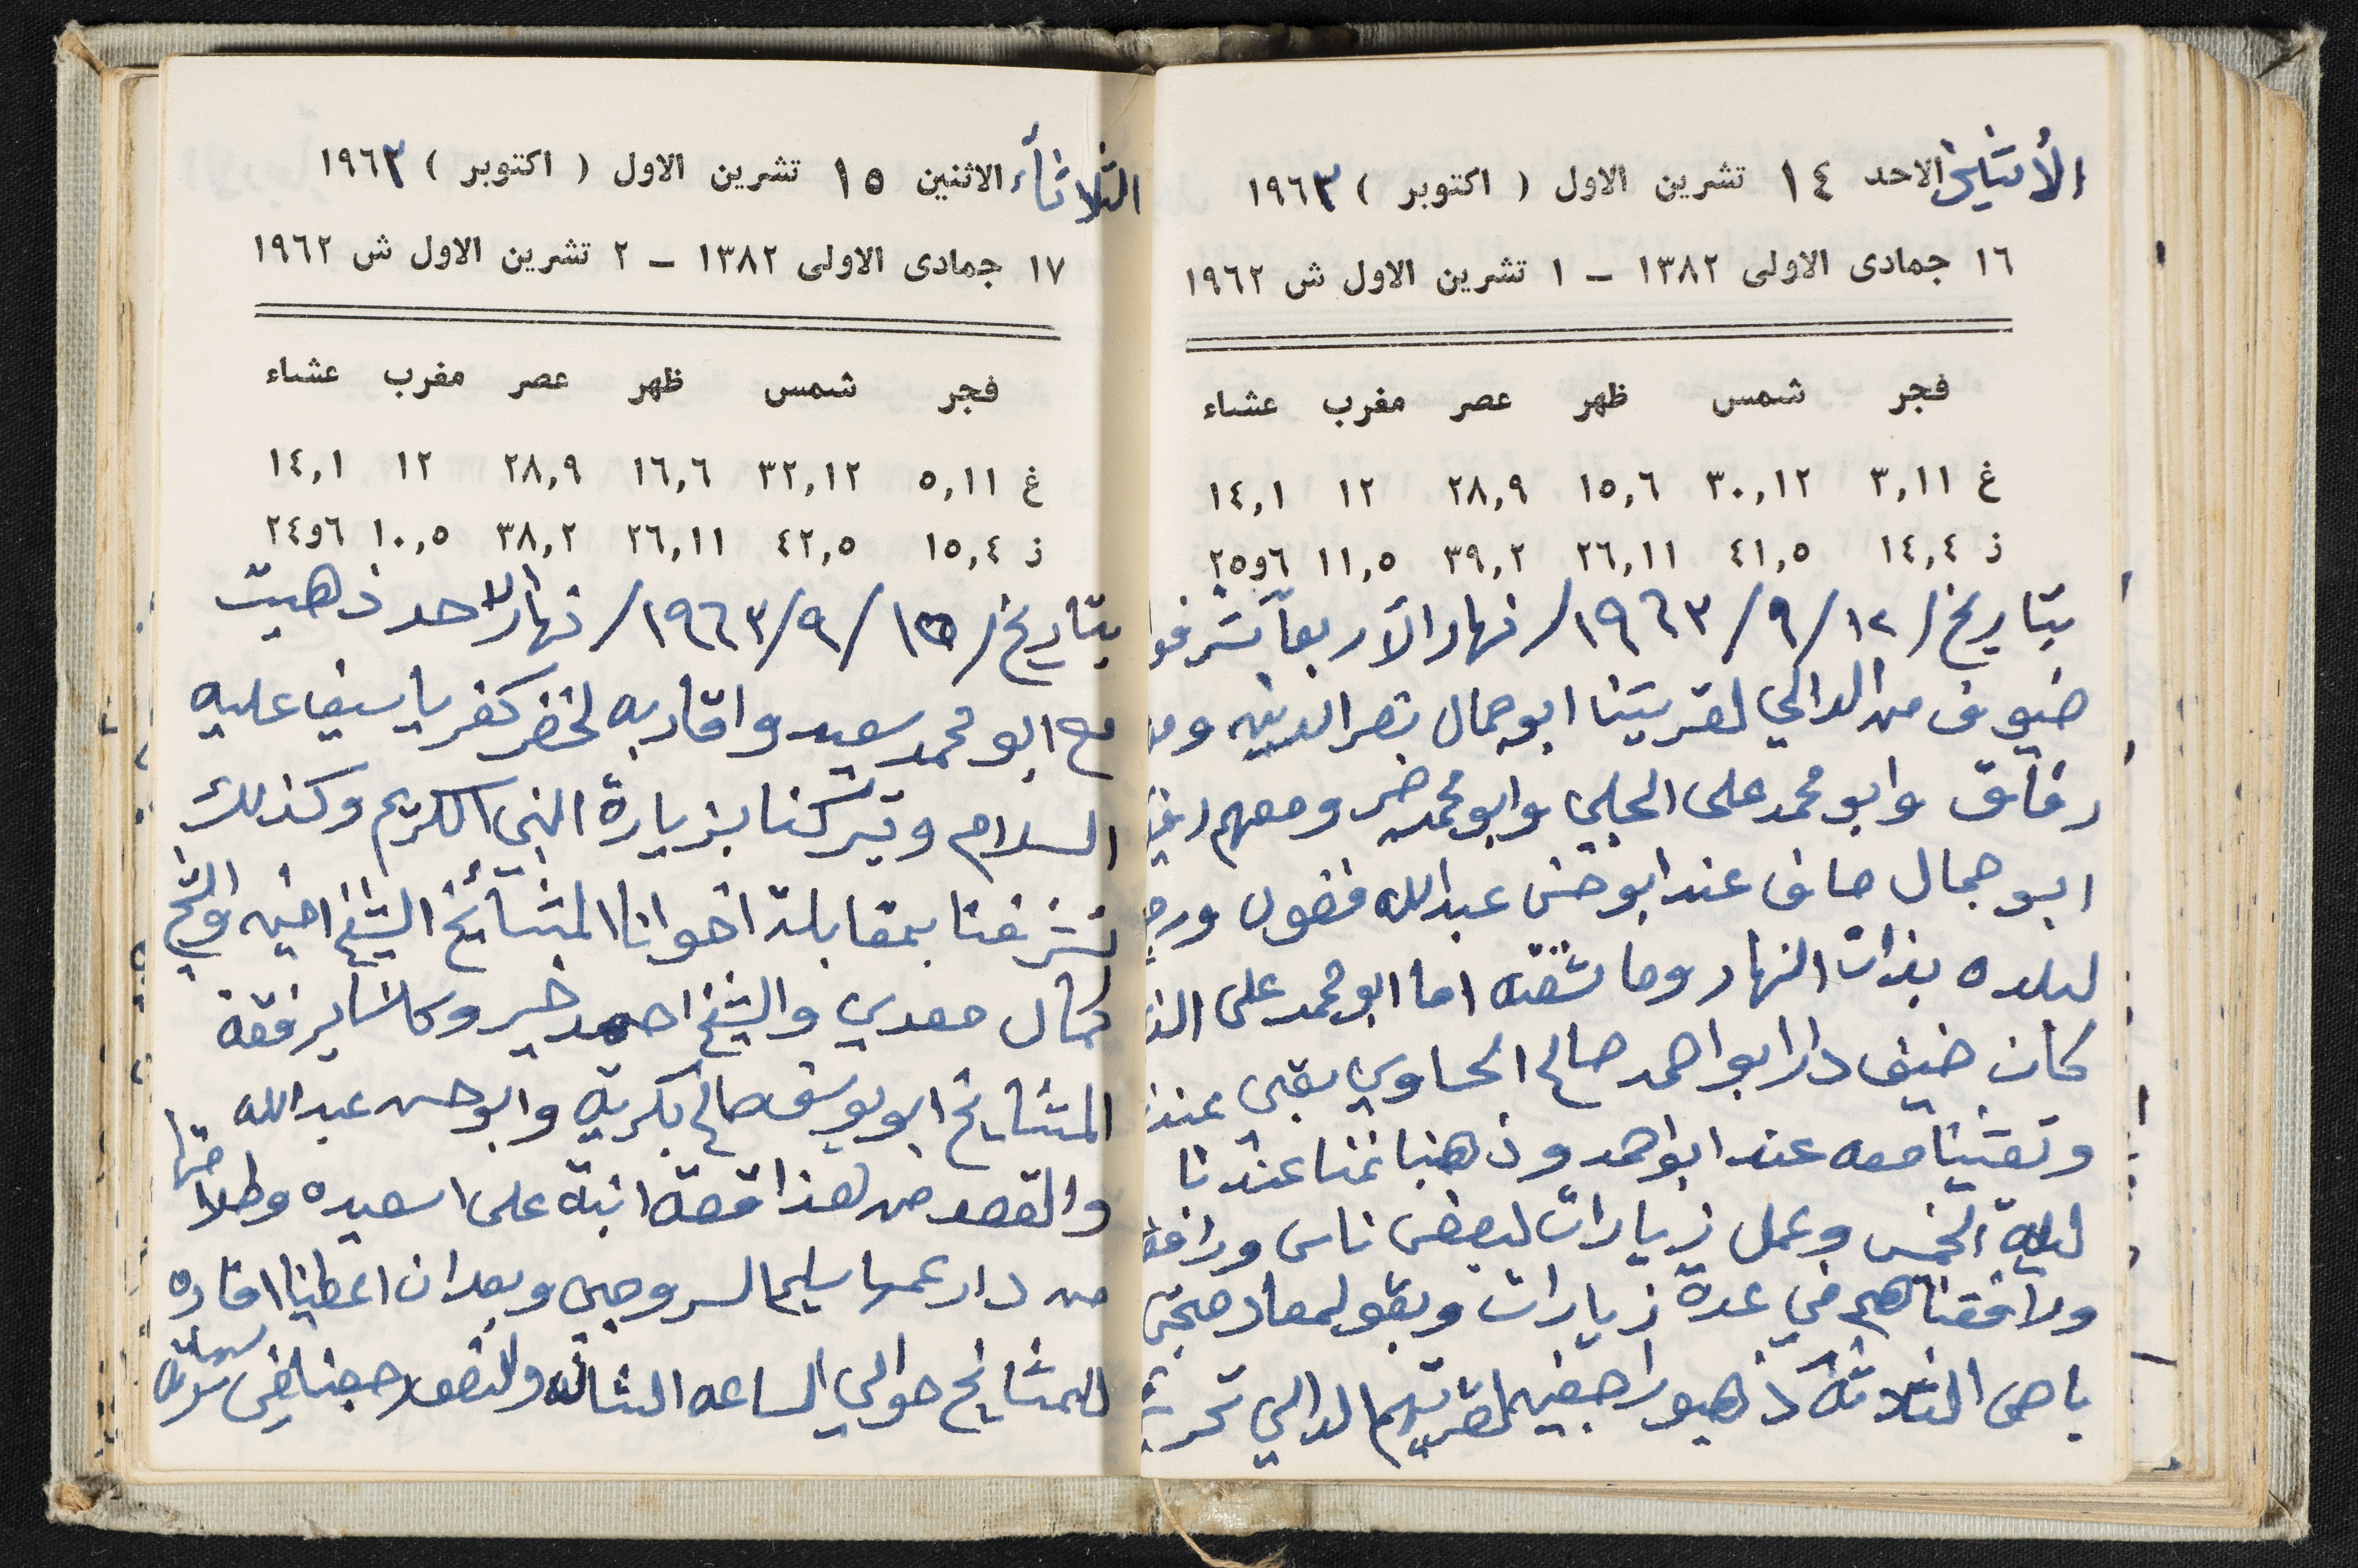 الأثنين الاحد ١٤ تشرين الاول ( اكتوبر ) ١٩٦٣
١٦ جمادى الاولى ١٣٨٢ – ١ تشرين الاول ش ١٩٦٢
فجر شمس ظهر عصر مغرب عشاء
غ ٣,١١ ٣٠,١٢ ١٥,٦ ٢٨,٩ ١٢ ١٤,١
ز ١٤,٤ ٤١,٥ ٢٦,١١ ٣٩,٢ ١١,٥ ٢٥و٦
بتاريخ / ١٢ / ٩ / ١٩٦٣ / نهار الأربعا تشرفوا
ضيوف من الدالي لقريتنا ابو جمال نصرالدين
رفاق وابو محمد على الحلبي وابو محمد ومعهم
ابو جمال ضاف عند ابو حسن عبدالله فضول
لبلده بذات النهار وما شفته اما ابو محمد على
كان ضيف دار ابو احمد صالح الحاوي بقي
وتعشينا معه عند ابو احمد وذهبنا نمنا عندنا
ليلة الخمس وعمل زيارات لبعض ناس
ورافقناهم في عدة زيارات
الثلاثة ذهبو راجعين لقريتهم الدالي
الثلاثأء الاثنين ١٥ تشرين الاول ( اكتوبر ) ١٩٦٣
١٧ جمادى الاولى ١٣٨٢ – ٢ تشرين الاول ش ١٩٦٢
فجر شمس ظهر عصر مغرب عشاء
غ ٥,١١ ٣٢,١٢ ١٦,٦ ٢٨,٩ ١٢ ١٤,١
ز ١٥,٤ ٤٢,٥ ٢٦,١١ ٣٨,٢ ١٠,٥ ٢٤و٦
بتاريخ / ١٥ / ٩ / ١٩٦٣ / نهار الاحد ذهبت
مع ابو محمد سعيد واقاربه لخضر كفرياسيف عليه
السلام وتبركنا بزيارة النبي الكريم وكذلك
تشرفنا بمقابلة اخواننا المشائخ الشيخ امين والشيخ
كمال معدي والشيخ احمد خير وكانا برفقة
المشايخ ابو يوسف صالح بكرية وابو حسن عبدالله
والقصد من هذا قصة ابنة على اسعيده وطلاقها
من دار عمها سليم السروجي وبعد ان اعطينا افاده
للمشايخ حوالي الساعه الثانه ولنصف رجعنا في